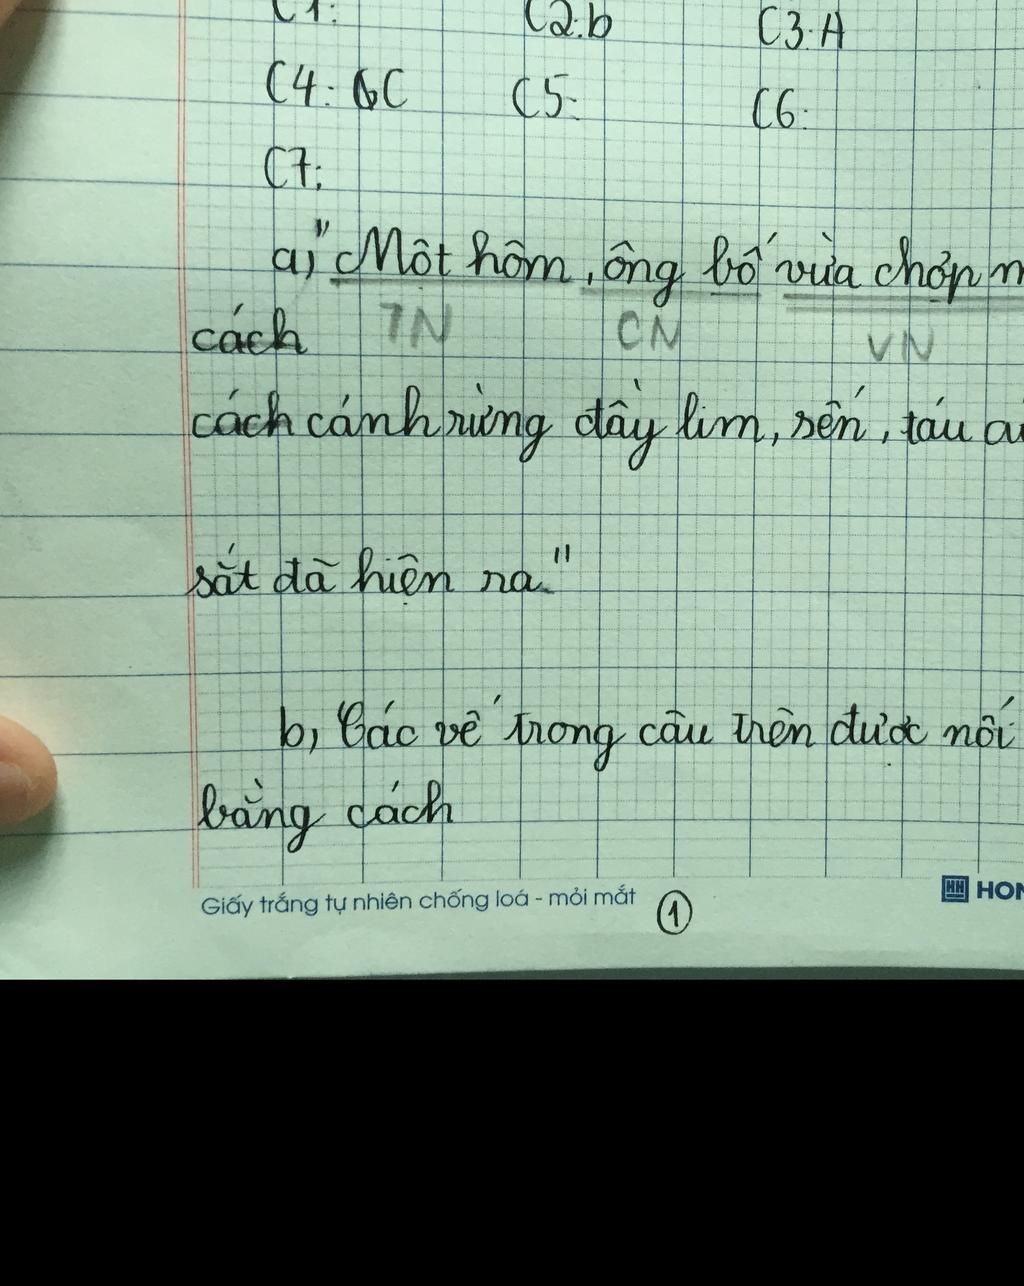 C1: C2.b C3.A
C4: C C5: C6:
C7:
a, "Một hôm, ông bố vừa chợp m
cách TN CN VN
cách cánh rừng đầy lim, sến, táu
sắt đã hiện ra."
b, Các vế trong câu trên được nối
bằng cách
Giấy trắng tự nhiên chống loá - mỏi mắt 1 HH HON